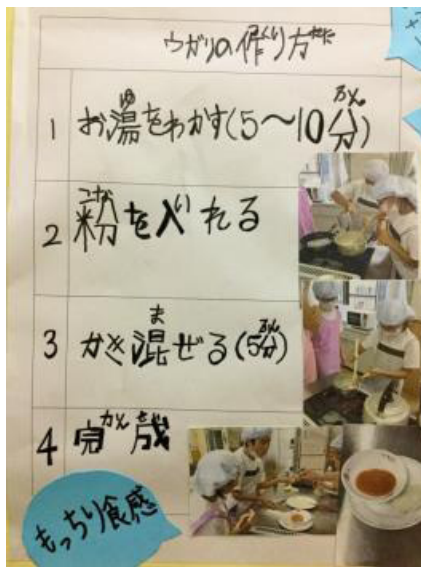 ウガリの作り方
1 お湯をわかす(5〜10分)
2 粉を入れる
3 かき混ぜる(5分)
4 完成
もっちり食感